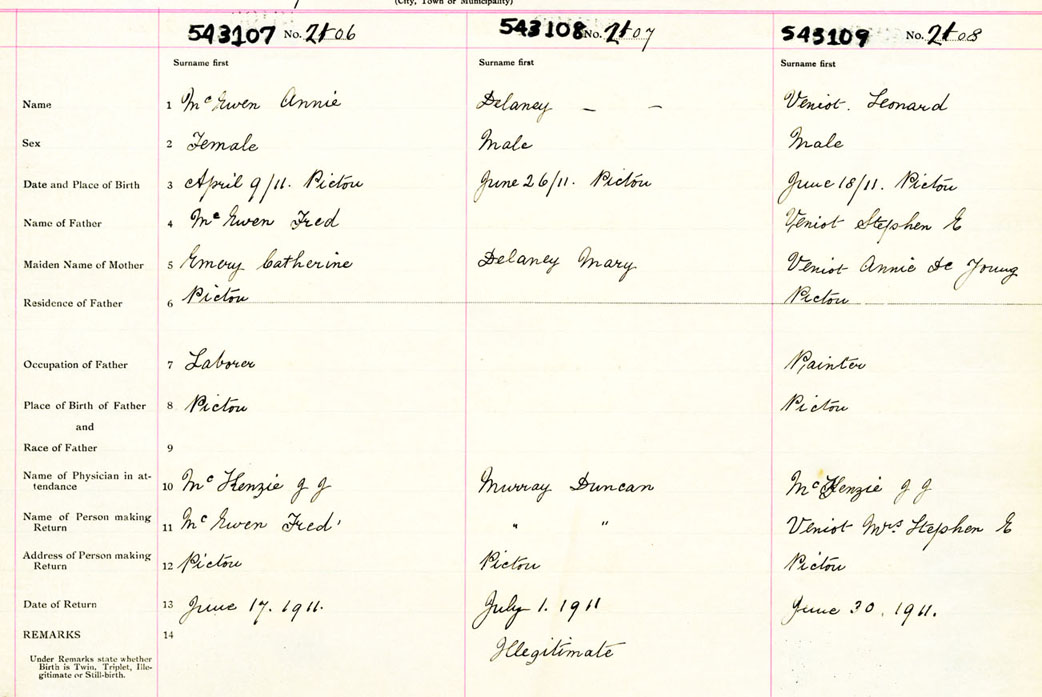 (City, Town or Municipality)
543107 No. 2406 543108 No. 2407 543109 No. 2408
Surname first Surname first Surname first
Name 1 Mc Ewen Annie Delaney — — Veniot. Leonard
Sex 2 Female Male Male
Date and Place of Birth 3 April 9/11. Pictou June 26/11. Pictou June 18/11. Pictou
Name of Father 4 Mc Ewen Fred Veniot Stephen E
Maiden Name of Mother 5 Emery Catherine Delaney Mary Veniot Annie De Young
Residence of Father 6 Pictou Pictou
Occupation of Father 7 Laborer Painter
Place of Birth of Father 8 Pictou Pictou
and
Race of Father 9
Name of Physician in at-
tendance 10 Mc Kenzie J J Murray Duncan Mc Kenzie J J
Name of Person making
Return 11 Mc Ewen Fred' " " Veniot Mrs. Stephen E
Address of Person making
Return 12 Pictou Pictou Pictou
Date of Return 13 June 17. 1911. July 1. 1911 June 30. 1911.
REMARKS 14
Illegitimate
Under Remarks state whether
Birth is Twin, Triplet, Ille-
gitimate or Still-birth.